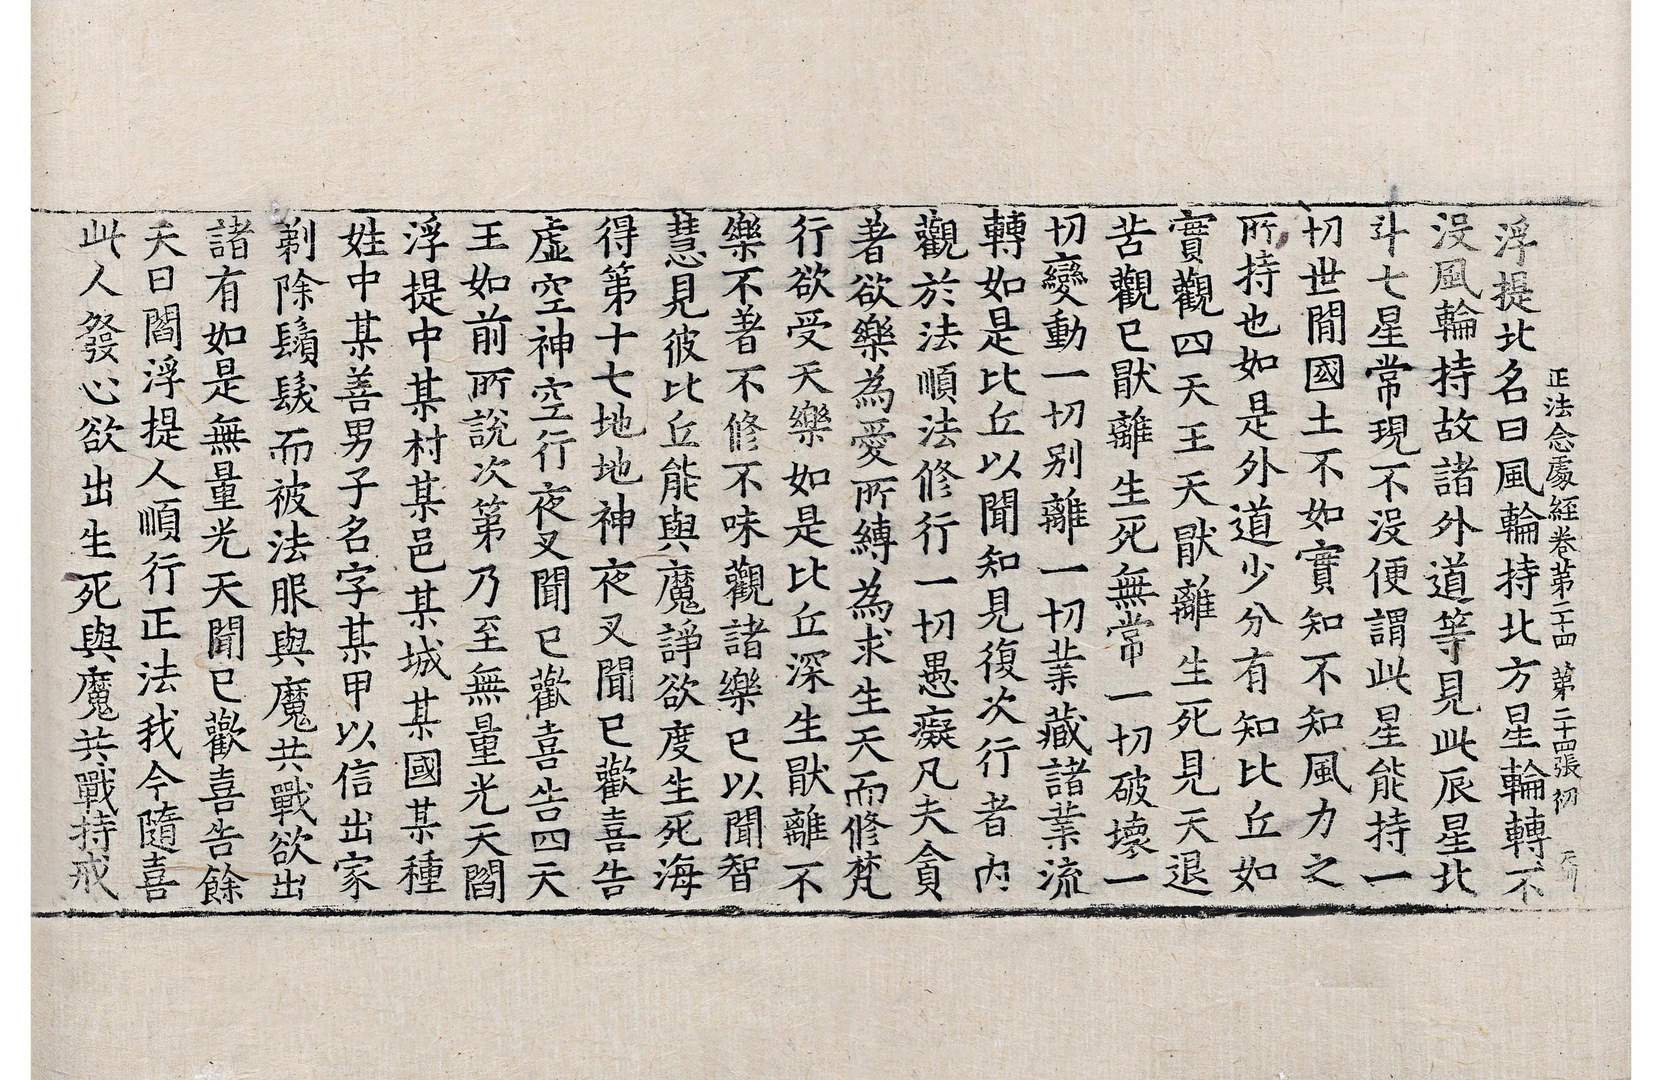 正法念處經卷第二十四 第二十四張 初
浮提北名曰風輪持北方星輪轉不
没風輪持故諸外道等見此辰星北
斗七星常現不没便謂此星能持一
切世間國土不如實知不知風力之
所持也如是外道少分有知比丘如
實觀四天王天厭離生死見天退
苦觀已厭離生死無常一切破壞一
切變動一切別離一切業藏諸業流
轉如是比丘以聞知見復次行者内
觀於法順法修行一切愚癡凡夫貪
著欲樂為愛所縛為求生天而修梵
行欲受天樂如是比丘深生厭離不
樂不著不修不味觀諸樂已以聞智
慧見彼比丘能與魔諍欲度生死海
得第十七地地神夜叉聞已歡喜告
虛空神空行夜叉聞已歡喜告四天
王如前所說次第乃至無量光天閻
浮提中某村某邑某城某國某種
姓中某善男子名字某甲以信出家
剃除鬚髮而被法服與魔共戰欲出
諸有如是無量光天聞已歡喜告餘
天曰閻浮提人順行正法我今隨喜
此人發心欲出生死與魔共戰持戒